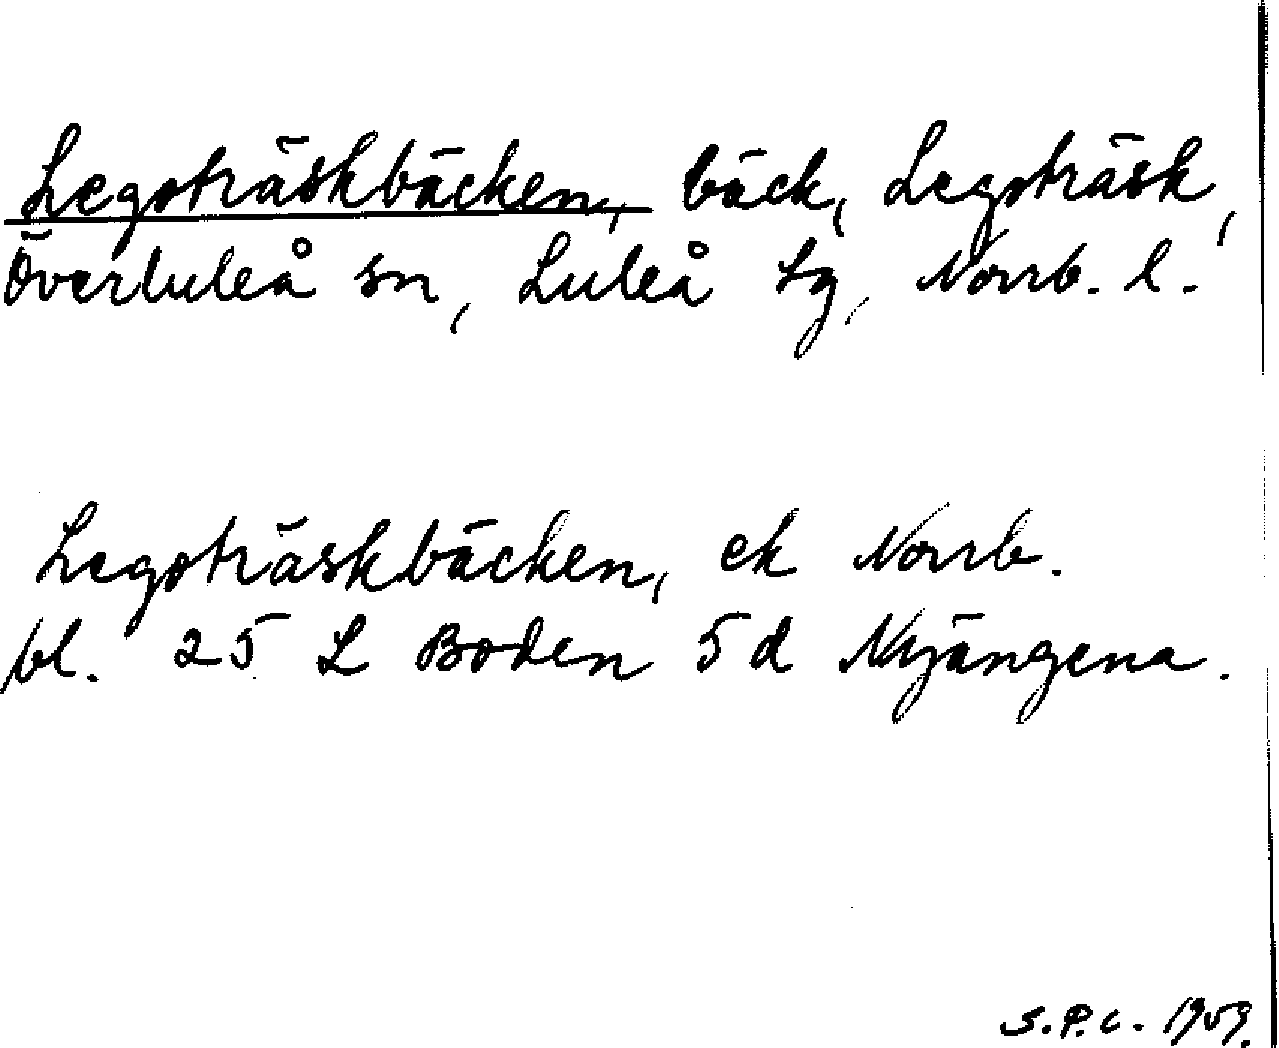 Legoträskbäcken, bäck, Legoträsk,
Överluleå sn, Luleå tg, Norrb. l.
Legoträskbäcken, ek Norrb.
bl. 25 L Boden 5 d Nyängena.
S.P.C. 1959.